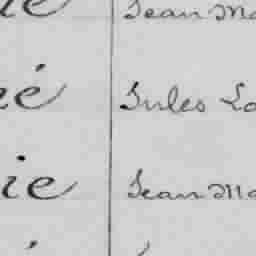 ie Jean Ma
né Jules Lo
ie Jean Ma